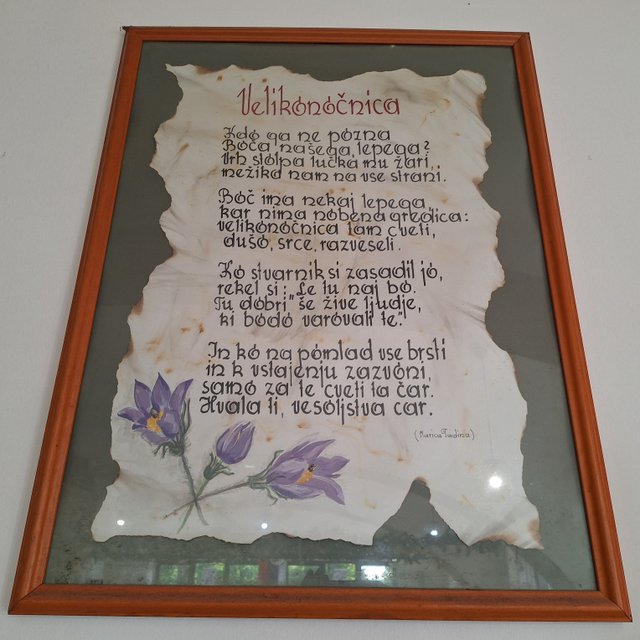 Velikonočnica
Kdo ga ne pozna
Boča našega lepega?
Vrh stolpa lučka mu žari,
mežika nam na vse strani.
Boč ima nekaj lepega,
kar nima nobena gredica:
velikonočnica tam cveti,
dušo, srce, razveseli.
Ko stvarnik si zasadil jo,
rekel si: "Le tu naj bo.
Tu dobri še žive ljudje,
ki bodo varovali te."
In ko na pomlad vse brsti
in k vstajenju zazvoni,
samo za te cveti ta čar.
Hvala ti, vesoljstva car.
(Marica Tadina)